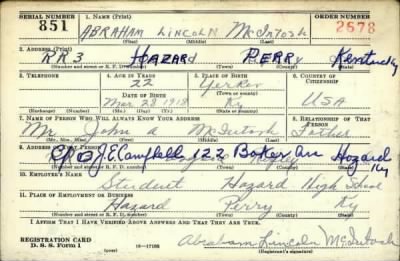 SERIAL NUMBER
1. NAME (Print)
ORDER NUMBER
851
ABRAHAM LINCOLN McINTOSH
2678
(First) (Middle) (Last)
2. ADDRESS (Print)
RR3 HAZARD PERRY Kentucky
(Number and street or R. F. D. number) (Town) (County) (State)
3. TELEPHONE
4. AGE IN YEARS
5. PLACE OF BIRTH
6. COUNTRY OF CITIZENSHIP
22
Yerkes
DATE OF BIRTH
(Town or county)
Mar 23 1918
Ky
USA
(Exchange) (Number)
(Mo.) (Day) (Yr.)
(State or country)
7. NAME OF PERSON WHO WILL ALWAYS KNOW YOUR ADDRESS
8. RELATIONSHIP OF THAT PERSON
Mr. John A McIntosh Father
(Mr., Mrs., Miss) (First) (Middle) (Last)
9. ADDRESS OF THAT PERSON
J.E. Campbell, 122 Baker Ave Hazard Ky
(Number and street or R. F. D. number) (Town) (County) (State)
10. EMPLOYER'S NAME
Student Hazard High School
11. PLACE OF EMPLOYMENT OR BUSINESS
Hazard Perry Ky
(Number and street or R. F. D. number) (Town) (County) (State)
I AFFIRM THAT I HAVE VERIFIED ABOVE ANSWERS AND THAT THEY ARE TRUE.
REGISTRATION CARD
D. S. S. Form 1
16—17105
Abraham Lincoln McIntosh
(Registrant's signature)